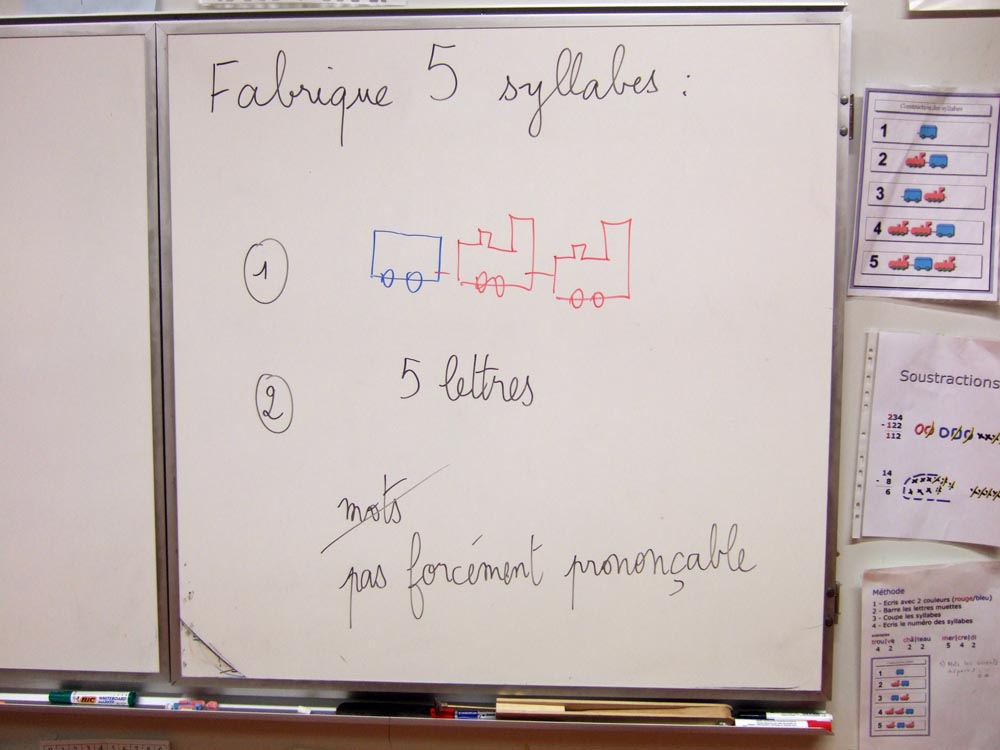 Fabrique 5 syllabes :
1
2
5 lettres
mots
pas forcément prononçable
Construction des syllabes
1
2
3
4
5
Soustractions
234
- 122
112
14
- 8
6
Méthode
1 - Ecris avec 2 couleurs (rouge/bleu)
2 - Barre les lettres muettes
3 - Coupe les syllabes
4 - Ecris le numéro des syllabes
trou|ve châ|teau mer|cre|di
4 2 2 2 5 4 2
1
2
3
4
5
BIC WHITEBOARD MARKER